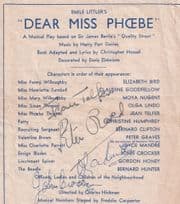 EMILE LITTLER'S
"DEAR MISS PHŒBE"
A Musical Play based on Sir James Barrie's "Quality Street"
Music by Harry Parr Davies
Book Adapted and Lyrics by Christopher Hassall
Decorated by Doris Zinkeisen
Characters in order of their appearance:
Miss Fanny Willoughby ELIZABETH BIRD
Miss Henrietta Turnbull CLAUDINE GOODFELLOW
Miss Mary Willoughby MOYA NUGENT
Miss Susan Throssel OLGA LINDO
Miss Phoebe Throssel JEAN TELFER
Patty CHRISTINE HUMPHREY
Recruiting Sergeant BERNARD CLIFTON
Valentine Brown PETER GRAVES
Miss Charlotte Parratt JOYCE MANDRE
Ensign Blades CROCKER
Lieutenant Spicer GORDON HONEY
The Beadle BERNARD HUNTER
Officers, Ladies and Children of the Neighbourhood
Directed by Charles Hickman
Musical Numbers Staged by Freddie Carpenter